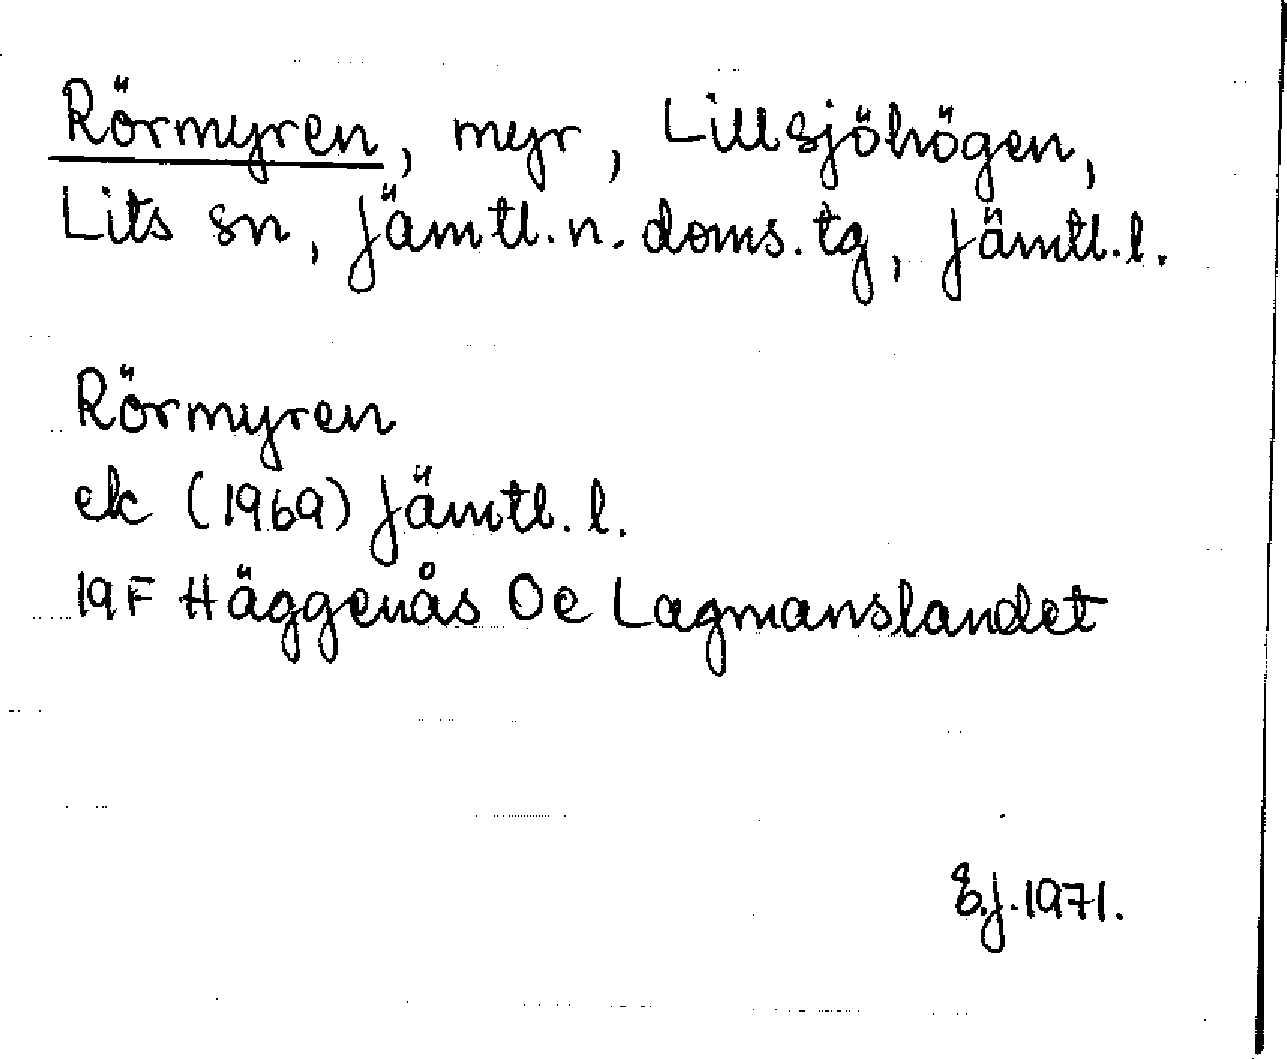 Rörmyren, myr, Lillsjöhögen,
Lits sn, Jämtl. n. doms. tg, Jämtl. l.
Rörmyren
ek (1969) Jämtl. l.
19F Häggenås 0e Lagmanslandet
E.J. 1971.